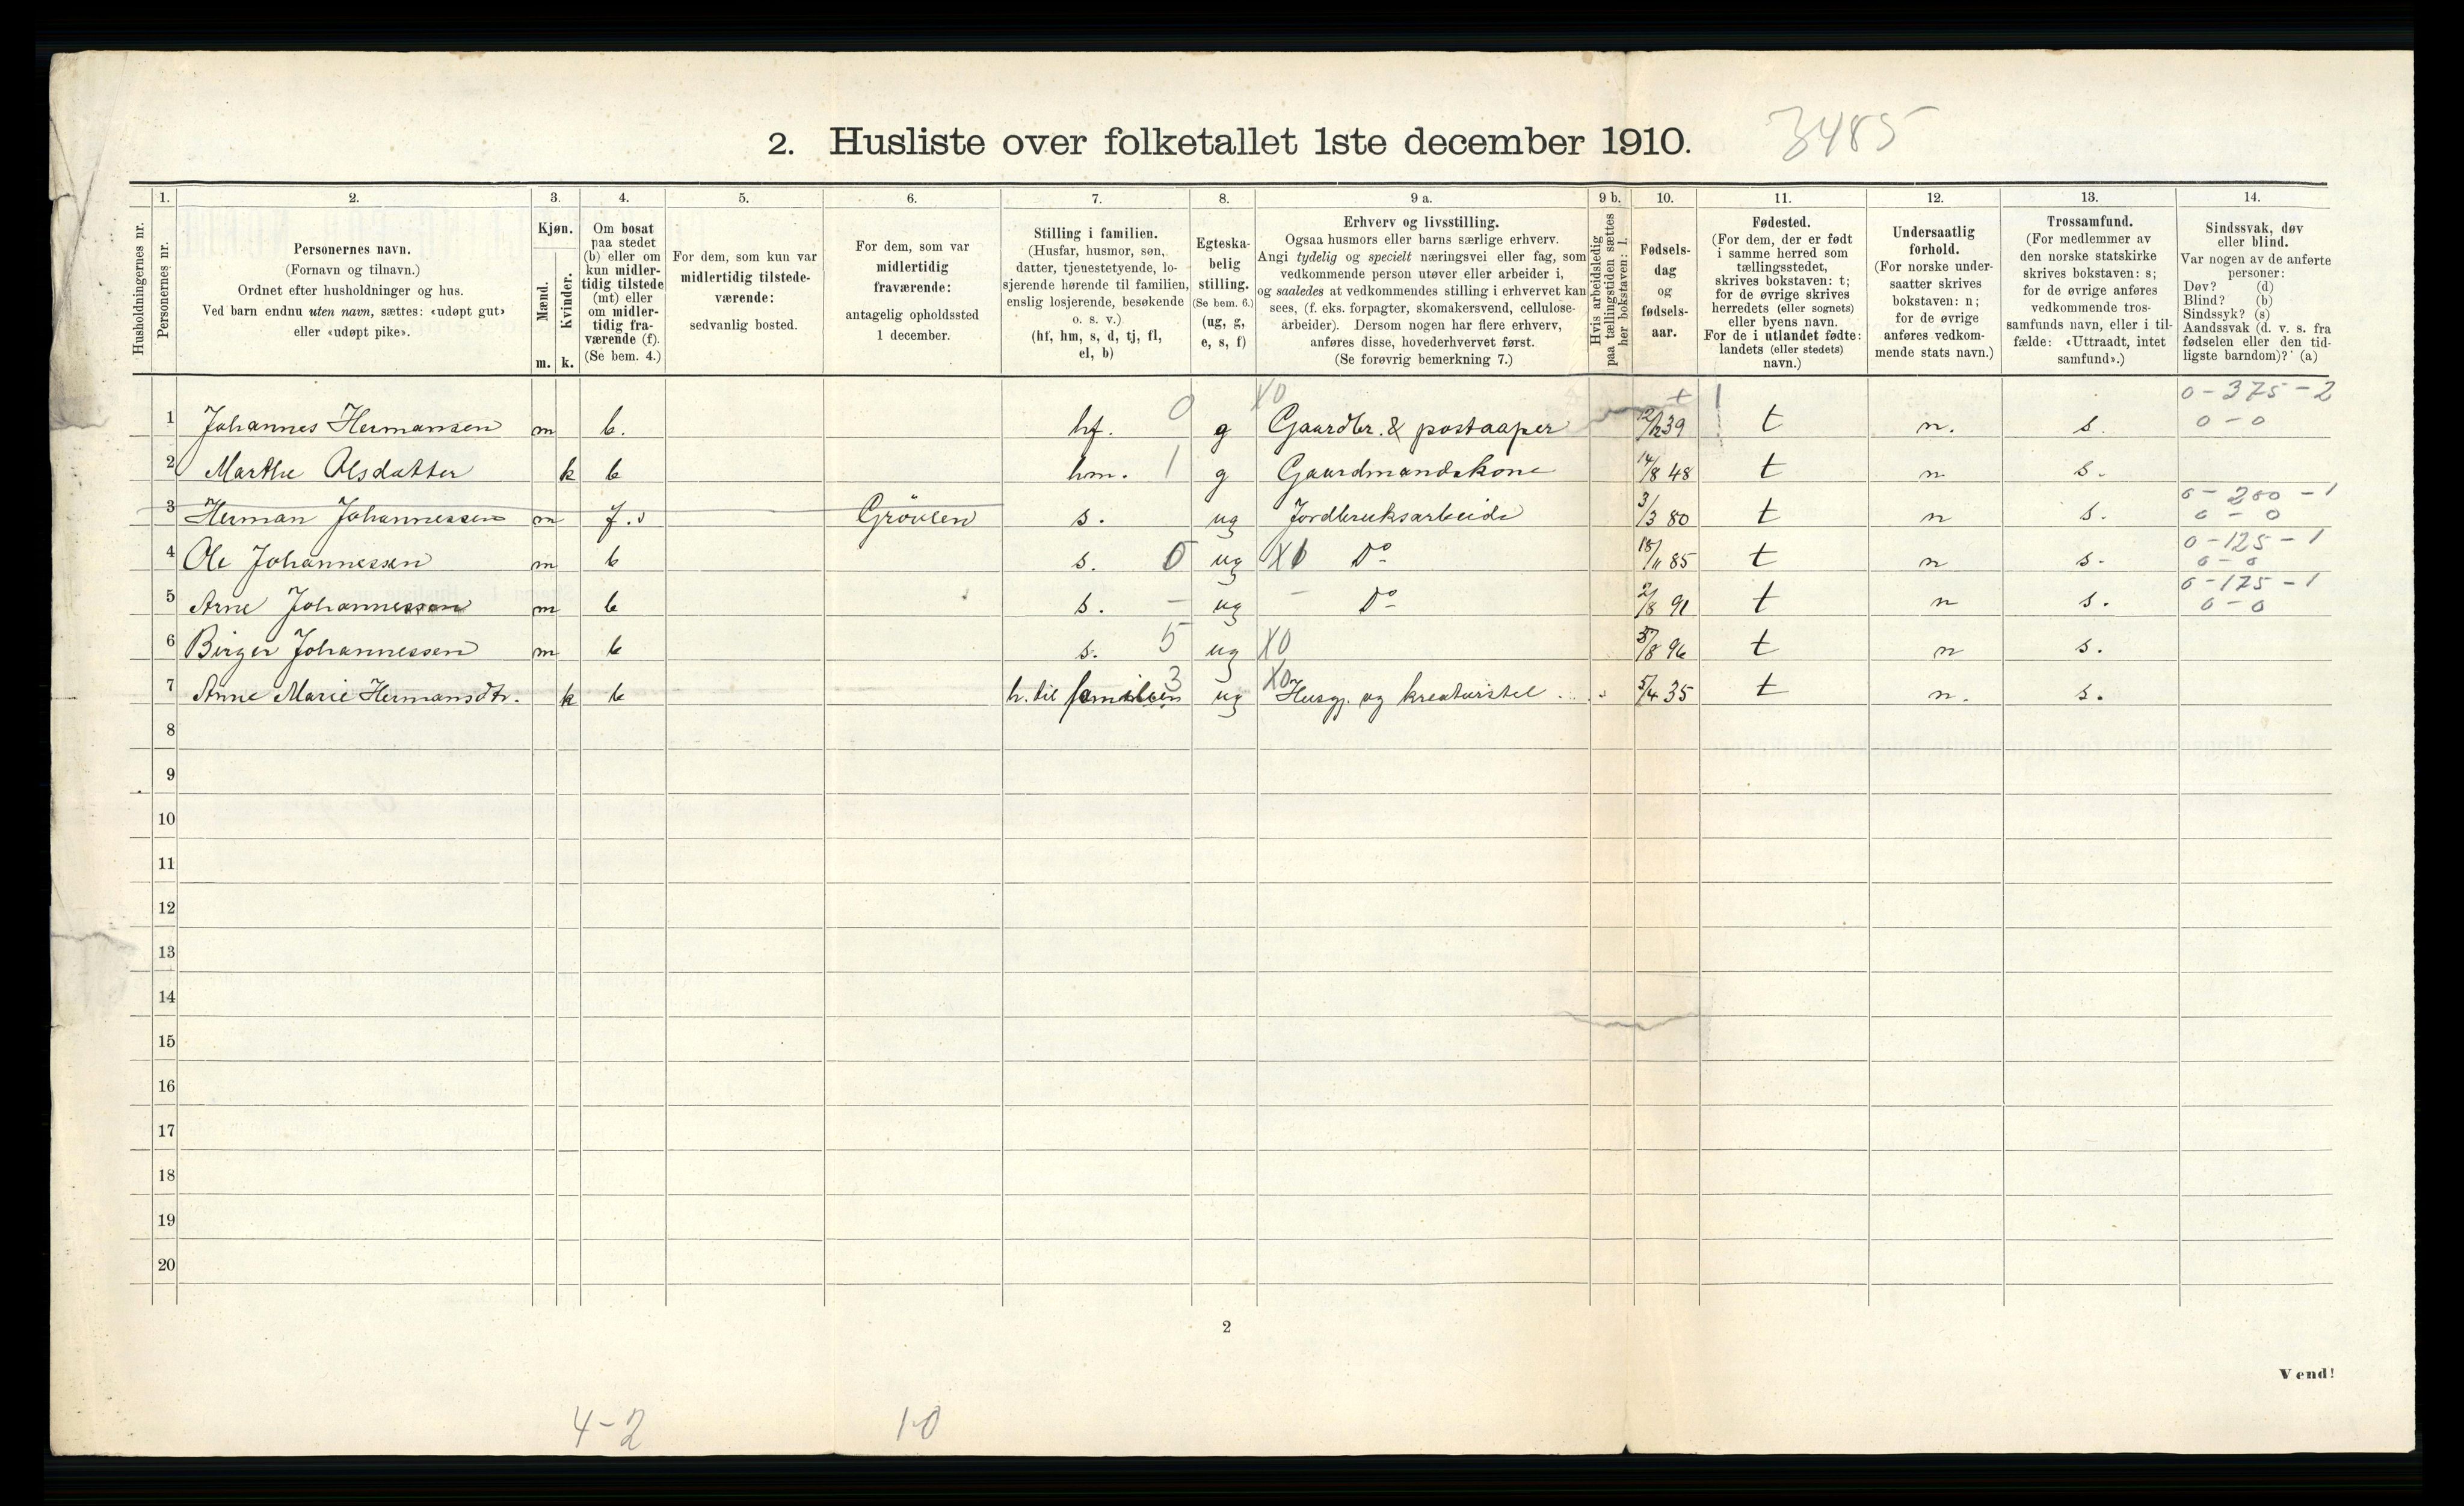 2. Husliste over folketallet 1ste december 1910. 3485
Husholdningernes nr.
1. Personernes nr.
2. Personernes navn.
(Fornavn og tilnavn.)
Ordnet efter husholdninger og hus.
Ved barn endnu uten navn, sættes: «udøpt gut»
eller «udøpt pike».
3. Kjøn.
Mænd. m.
Kvinder. k.
4. Om bosat
paa stedet
(b) eller om
kun midler-
tidig tilstede
(mt) eller
om midler-
tidig fra-
værende (f).
(Se bem. 4.)
5. For dem, som kun var
midlertidig tilstede-
værende:
sedvanlig bosted.
6. For dem, som var
midlertidig
fraværende:
antagelig opholdssted
1 december.
7. Stilling i familien.
(Husfar, husmor, søn,
datter, tjenestetyende, lo-
sjerende hørende til familien,
enslig losjerende, besøkende
o. s. v.)
(hf, hm, s, d, tj, fl,
el, b)
8. Egteska-
belig
stilling.
(Se bem. 6.)
(ug, g,
e, s, f)
9 a. Erhverv og livsstilling.
Ogsaa husmors eller barns særlige erhverv.
Angi tydelig og specielt næringsvei eller fag, som
vedkommende person utøver eller arbeider i,
og saaledes at vedkommendes stilling i erhvervet kan
sees, (f. eks. forpagter, skomakersvend, cellulose-
arbeider). Dersom nogen har flere erhverv,
anføres disse, hovederhvervet først.
(Se forøvrig bemerkning 7.)
9 b. Hvis arbeidsledig
paa tællingstiden sættes
her bokstaven: l.
10. Fødsels-
dag
og
fødsels-
aar.
11. Fødested.
(For dem, der er født
i samme herred som
tællingsstedet,
skrives bokstaven: t;
for de øvrige skrives
herredets (eller sognets)
eller byens navn.
For de i utlandet fødte:
landets (eller stedets)
navn.)
12. Undersaatlig
forhold.
(For norske under-
saatter skrives
bokstaven: n;
for de øvrige
anføres vedkom-
mende stats navn.)
13. Trossamfund.
(For medlemmer av
den norske statskirke
skrives bokstaven: s;
for de øvrige anføres
vedkommende tros-
samfunds navn, eller i til-
fælde: «Uttraadt, intet
samfund».)
14. Sindssvak, døv
eller blind.
Var nogen av de anførte
personer:
Døv? (d)
Blind? (b)
Sindssyk? (s)
Aandssvak (d. v. s. fra
fødselen eller den tid-
ligste barndom)? (a)
X0 0-375-2
1 Johannes Hermansen m b. hf. 0 g Gaardbr. & postaaper 12/12 39 t n. s. 0-0
2 Marthe Olsdatter k b hm. 1 g Gaardmandskone 14/8 48 t n s.
0-200-1
3 Herman Johannessen m f. Gröusen s. ug Jordbruksarbeide 3/3 80 t n s. 0-0
0-125-1
4 Ole Johannessen m b s. 0 ug Do 18/11 85 t n s. 0-0
0-175-1
5 Arne Johannessen m b s. - ug - Do 2/8 91 t n s. 0-0
6 Birger Johannessen m b s. 5 ug X0 /8 96 t n s.
7 Anne Marie Hermansdtr. k b h. til familien 3 ug X0 Husgj. og kreaturstel 5/4 35 t n. s.
8
9
10
11
12
13
14
15
16
17
18
19
20
2
Vend!
4-2 1-0